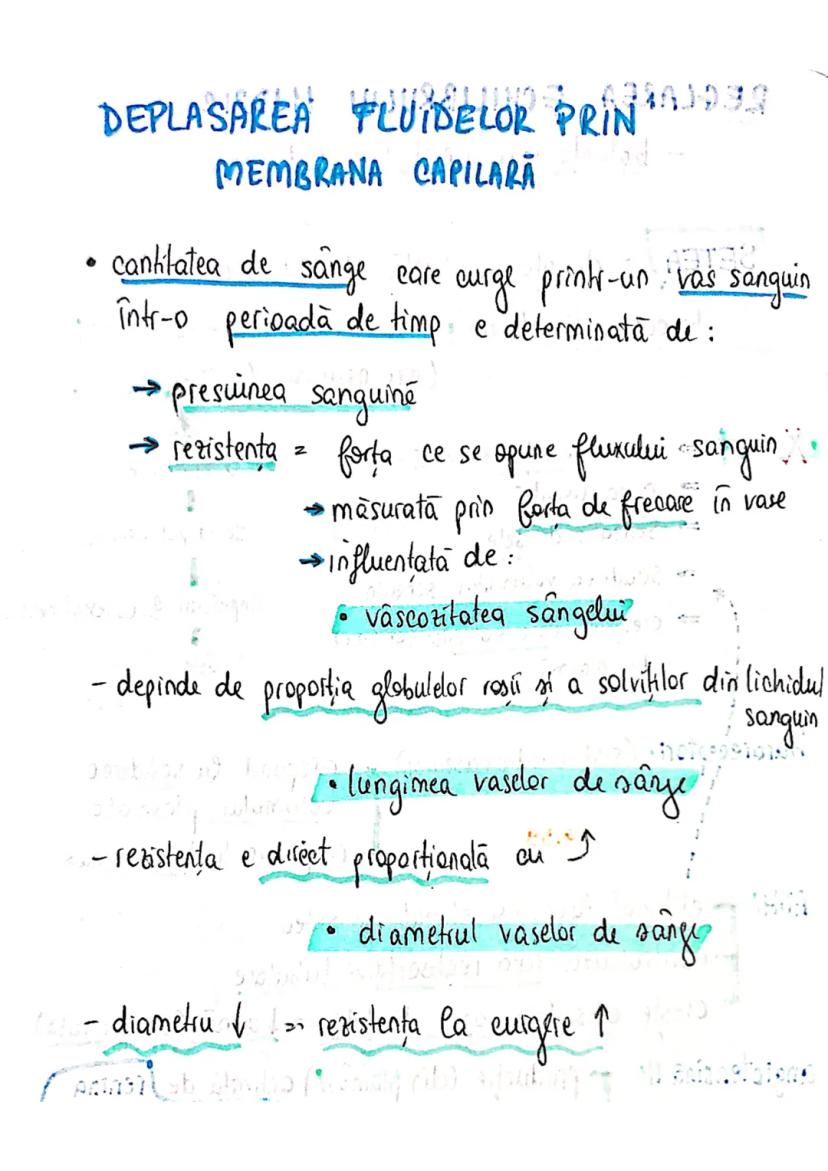 DEPLASAREA FLUIDELOR PRIN
MEMBRANA CAPILARĂ
• cantitatea de sânge care curge printr-un vas sanguin
într-o perioadă de timp e determinată de:
→ presuinea sanguină
→ rezistența = forța ce se opune fluxului sanguin
→ măsurată prin forța de frecare în vase
→ influențată de:
• vâscozitatea sângelui
- depinde de proporția globulelor roșii și a solviților din lichidul
sanguin
• lungimea vaselor de sânge
- rezistența e direct proporțională cu ⤴
• diametrul vaselor de sânge
- diametru ↓ => rezistența la curgere ↑